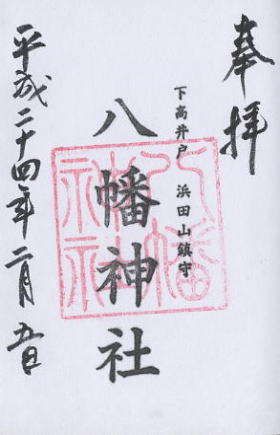 奉拝
下高井戸 浜田山鎮守
八幡神社
平成二十四年二月五日
八幡神社